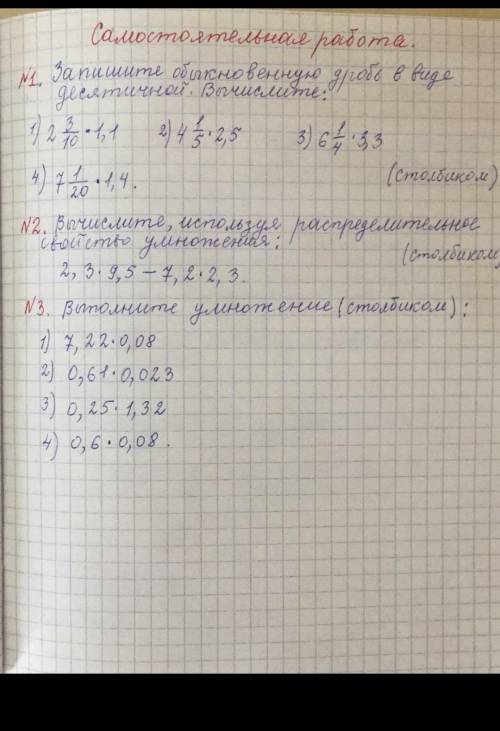 Самостоятельная работа.
№1. Запишите обыкновенную дробь в виде
десятичной. Вычислите:
1) 2 3/10 · 1,1 2) 4 1/5 · 2,5 3) 6 1/4 · 3,3
4) 7 1/20 · 1,4. (столбиком)
№2. Вычислите, используя распределительное
свойство умножения: (столбиком)
2,3 · 9,5 − 7,2 · 2,3.
№3. Выполните умножение (столбиком):
1) 7,22 · 0,08
2) 0,61 · 0,023
3) 0,25 · 1,32
4) 0,6 · 0,08.